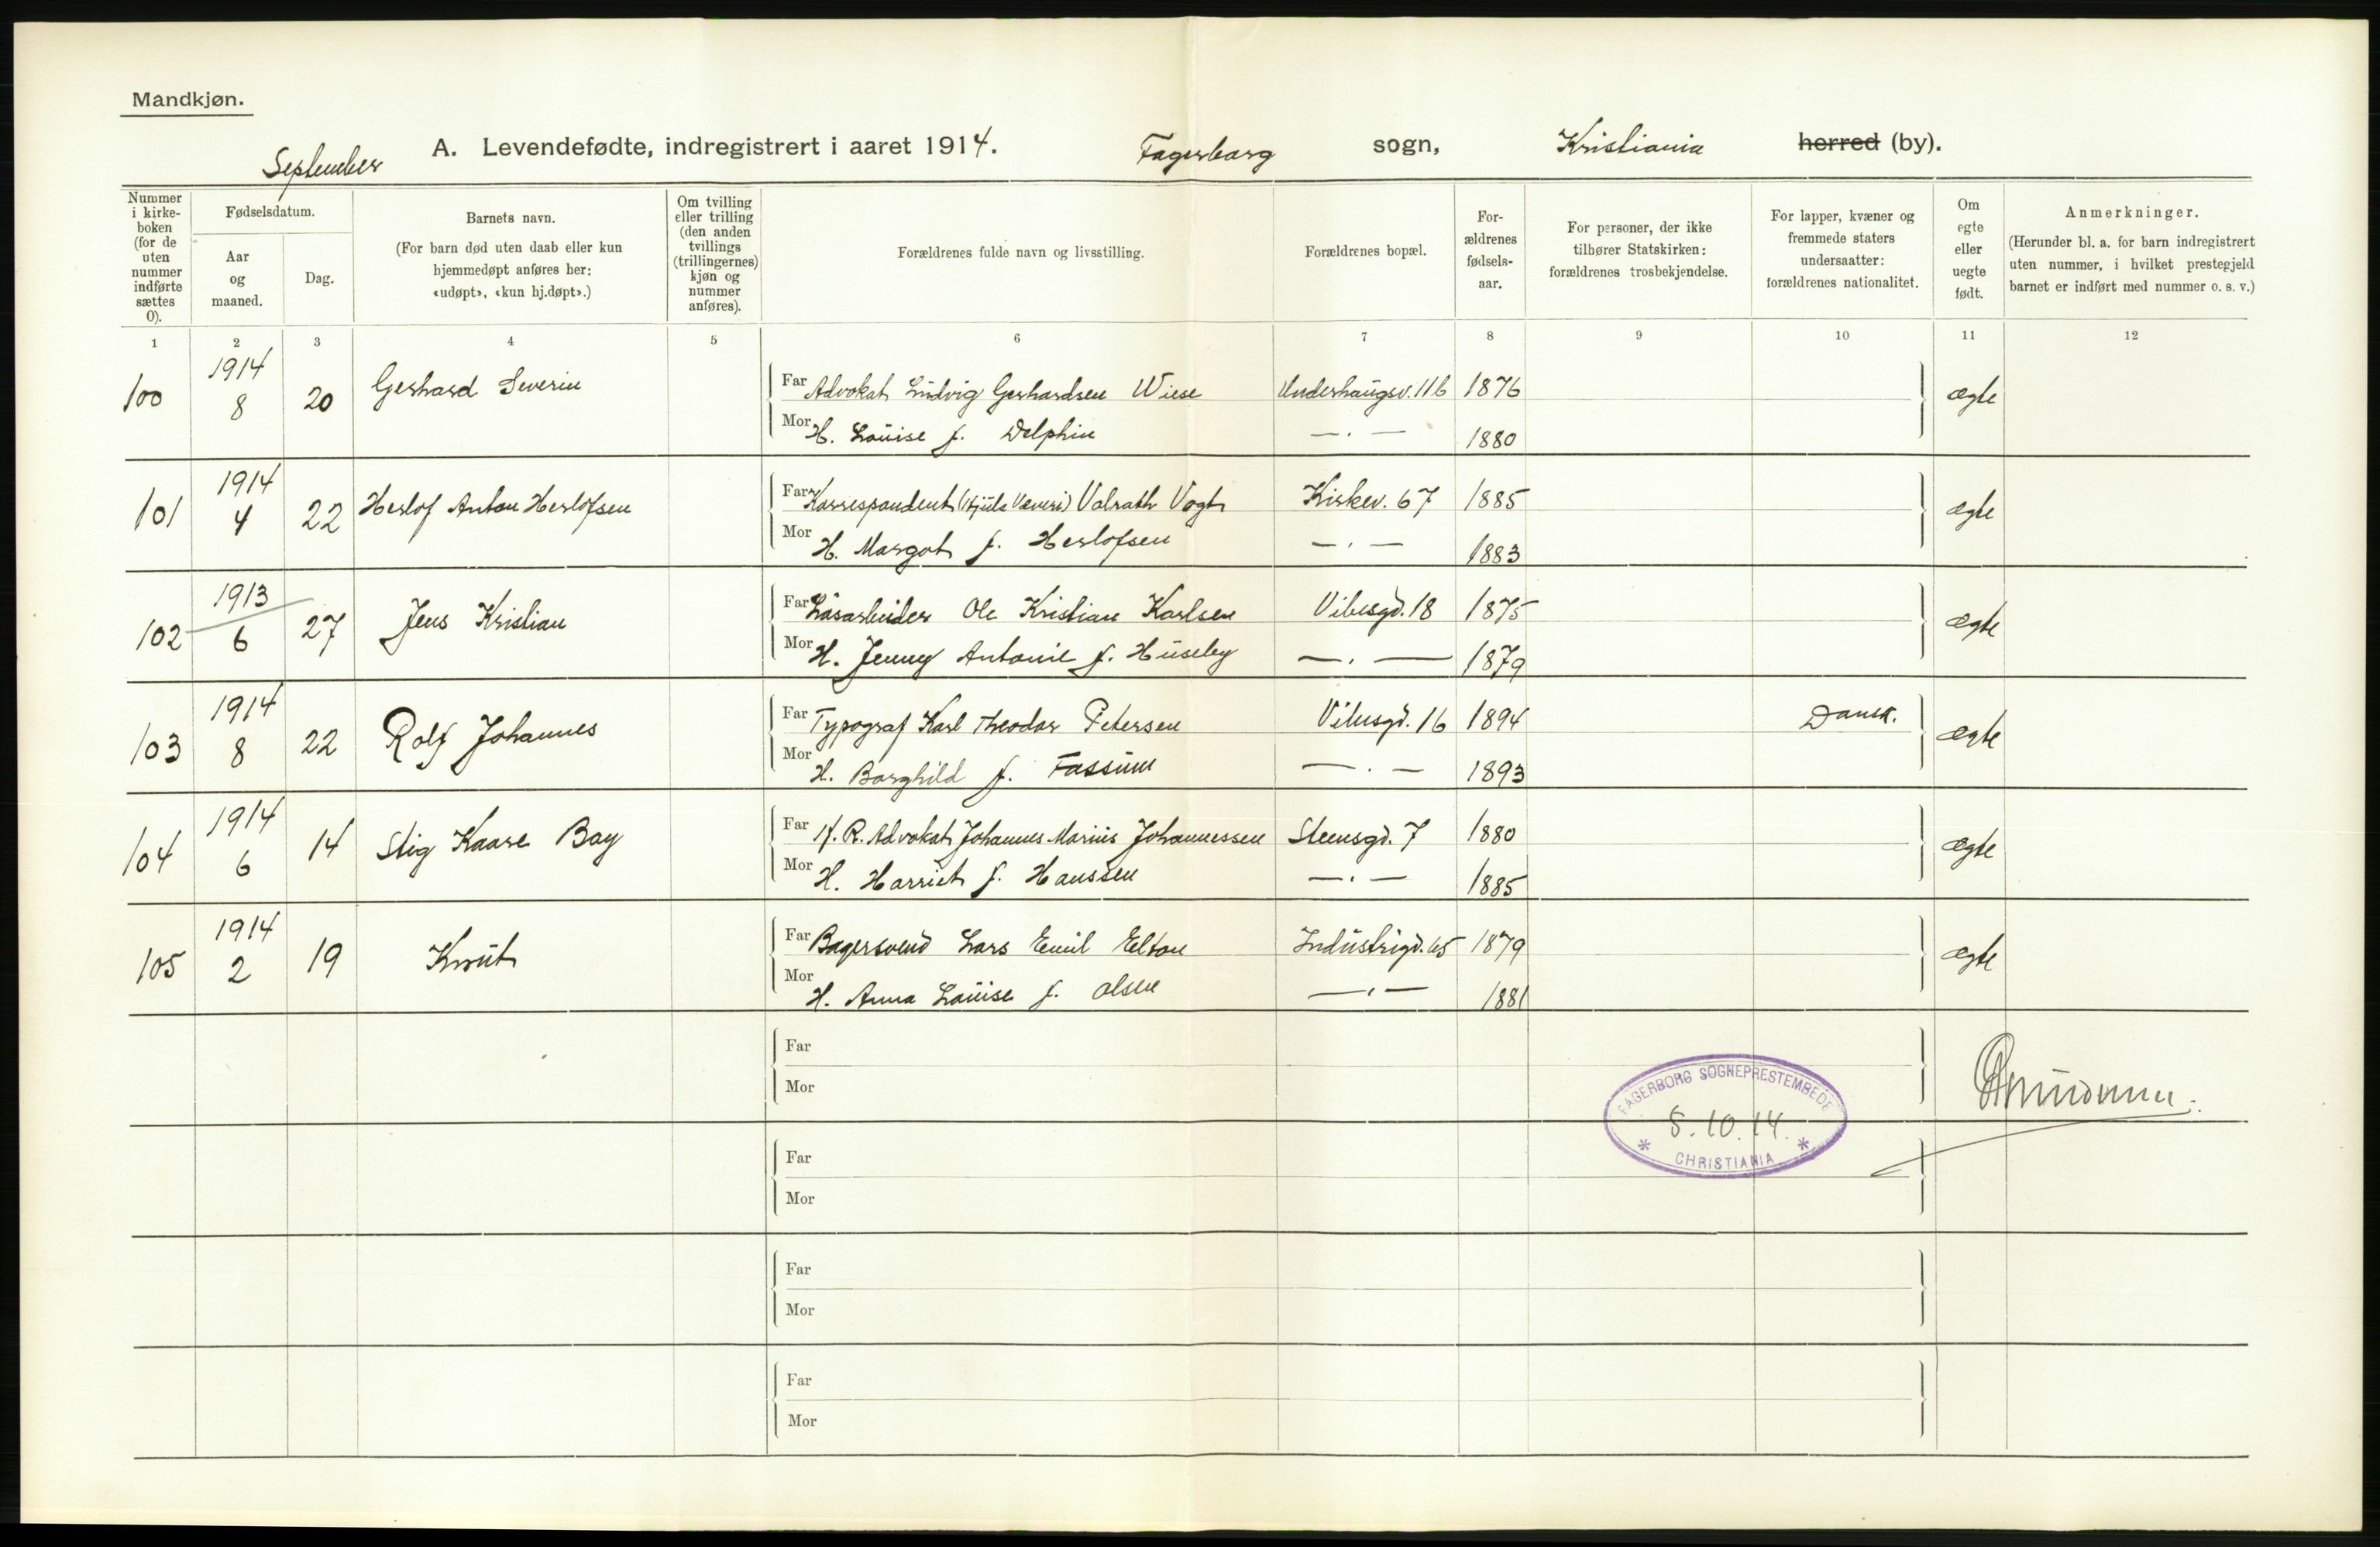 Mandkjøn.
September A. Levendefødte, indregistrert i aaret 1914. Fagerborg sogn, Kristiania herred (by).
Nummer i kirke- boken (for de uten nummer indførte sættes 0).
Fødselsdatum.
Aar og maaned.
Dag.
Barnets navn.
(For barn død uten daab eller kun hjemmedøpt anføres her: «udøpt», «kun hj.døpt».)
Om tvilling eller trilling (den anden tvillings (trillingernes) kjøn og nummer anføres).
Forældrenes fulde navn og livsstilling.
Forældrenes bopæl.
For- ældrenes fødsels- aar.
For personer, der ikke tilhører Statskirken: forældrenes trosbekjendelse.
For lapper, kvæner og fremmede staters undersaatter: forældrenes nationalitet.
Om egte eller uegte født.
Anmerkninger.
(Herunder bl. a. for barn indregistrert uten nummer, i hvilket prestegjeld barnet er indført med nummer o. s. v.)
1 2 3 4 5 6 7 8 9 10 11 12
100 1914 8 20 Gerhard Severin
Far Advokat Ludvig Gerhardsen Wiese Underhaugsv. 11b 1876 ægte
Mor H. Louise f. Delphin —.— 1880
101 1914 4 22 Herlof Anton Herlofsen
Far Korrespondent (Hjula Væveri) Valrath Vogt Kirkev. 67 1885 ægte
Mor H. Margot f. Herlofsen —.— 1883
102 1913 6 27 Jens Kristian
Far Løsarbeider Ole Kristian Karlsen Vibesgd. 18 1875 ægte
Mor H. Jenny Antonie f. Huseby —.— 1879
103 1914 8 22 Rolf Johannes
Far Typograf Karl Theodor Petersen Vibesgd. 16 1894 Dansk. ægte
Mor H. Borghild f. Fossum —.— 1893
104 1914 6 14 Stig Kaare Bay
Far H. R. Advokat Johannes Marius Johannessen Steensgd. 7 1880 ægte
Mor H. Harriet f. Hanssen —.— 1885
105 1914 2 19 Knut
Far Bagersvend Lars Emil Elton Industrigd. 65 1879 ægte
Mor H. Anna Louise f. Olsen —.— 1881
Far
Mor
FAGERBORG SOGNEPRESTEMBEDE
8.10.14.
* CHRISTIANIA *
Far
Mor
Far
Mor
Far
Mor